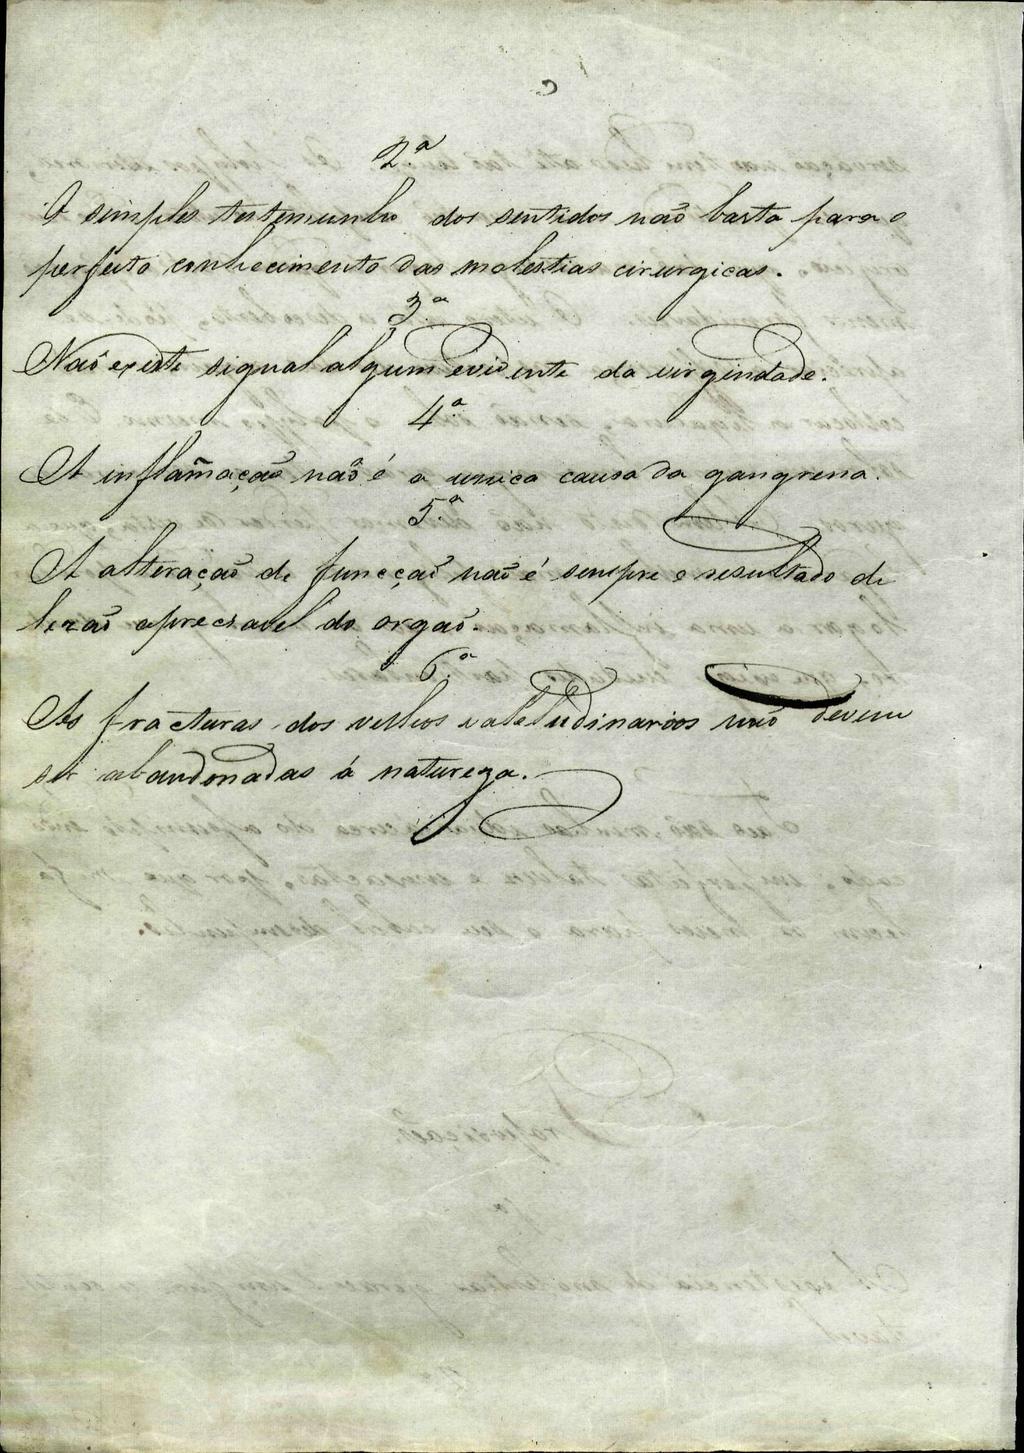 2.ª
O simples testemunho dos sentidos não basta para o
perfeito conhecimento das molestias cirurgicas.
3.ª
Não existe signal algum evidente da virgindade.
4.ª
A inflammação não é a unica causa da gangrena.
5.ª
A alteração de funcção não é sempre o resultado de
lezão apreciavel do orgão.
6.ª
As fracturas dos velhos valetudinarios não devem
ser abandonadas á natureza.